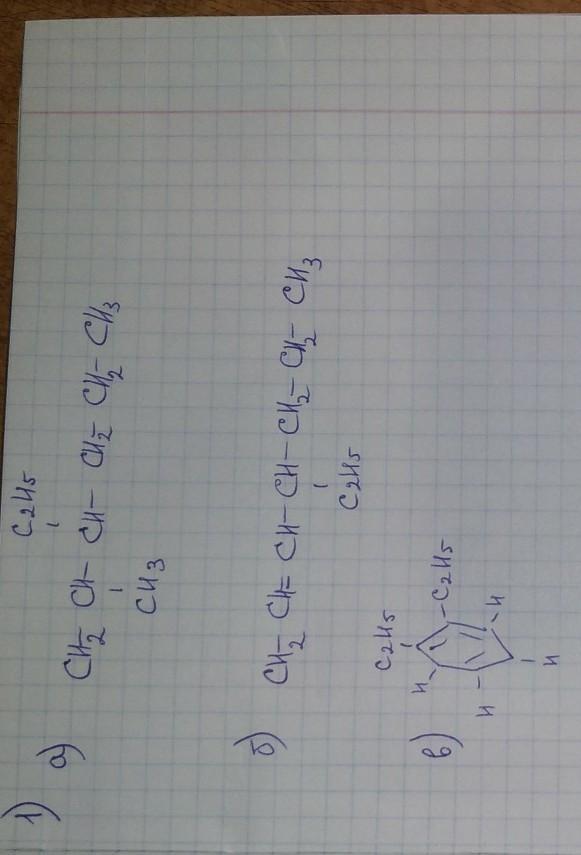 1)
C₂H₅
а) CH₂-CH-CH-CH₂-CH₂-CH₃
CH₃
б) CH₂-CH=CH-CH-CH₂-CH₂-CH₃
C₂H₅
C₂H₅
в) H -C₂H₅
H H
H